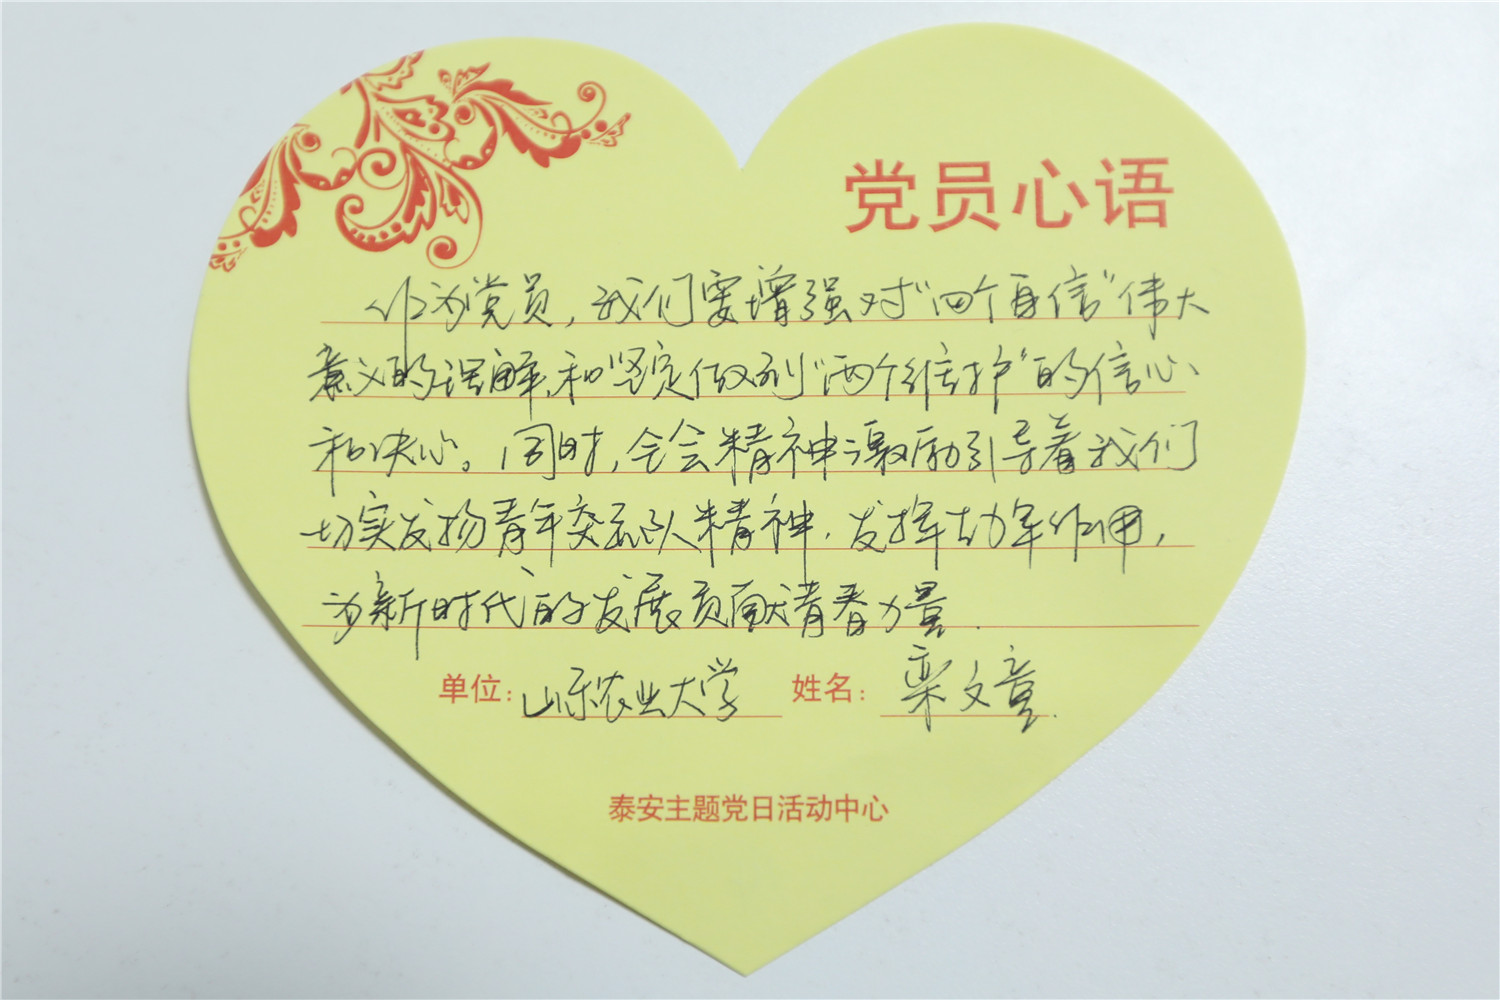 党员心语
作为党员，我们要增强对“四个自信”伟大
意义的理解，和坚定做到“两个维护”的信心
和决心。同时，全会精神激励引导着我们
切实发扬青年突击队精神，发挥生力军作用，
为新时代的发展贡献青春力量.
单位：山东农业大学 姓名：栾文章
泰安主题党日活动中心